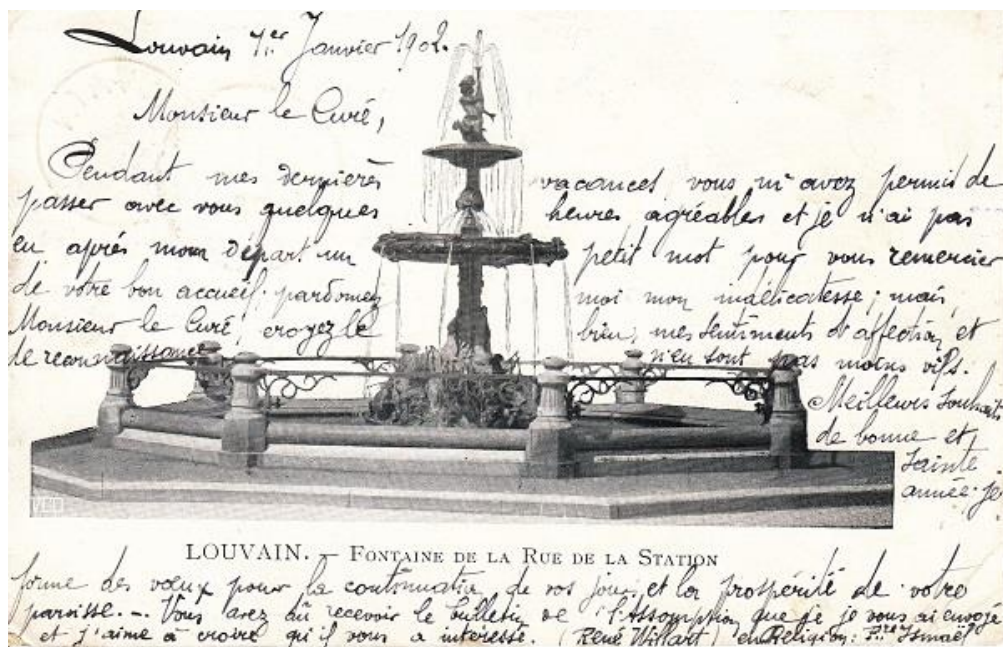 Louvain 1er Janvier 1902.
Monsieur le Curé,
Pendant mes dernières vacances, vous m'avez permis de
passer avec vous quelques heures agréables et je n'ai pas
eu après mon départ un petit mot pour vous remercier
de votre bon accueil; pardonnez moi mon indélicatesse; mais,
Monsieur le Curé, croyez le bien, mes sentiments d'affection et
de reconnaissance n'en sont pas moins vifs.
Meilleurs souhaits
de bonne et
sainte
année. Je
VED
LOUVAIN. — FONTAINE DE LA RUE DE LA STATION
forme des vœux pour la continuation de vos jours et la prospérité de votre
paroisse. — Vous avez dû recevoir le bulletin de l'Assomption que je vous ai envoyé
et j'aime à croire qu'il vous a intéressé. (René Willart) en Religion: Fre Ismaël